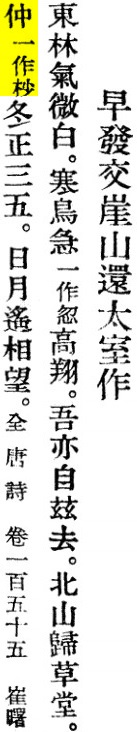 早發交崖山還太室作
東林氣微白。寒鳥急一作忽高翔。吾亦自玆去。北山歸草堂。
仲一作杪冬正三五。日月遙相望。全唐詩 卷一百五十五 崔曙